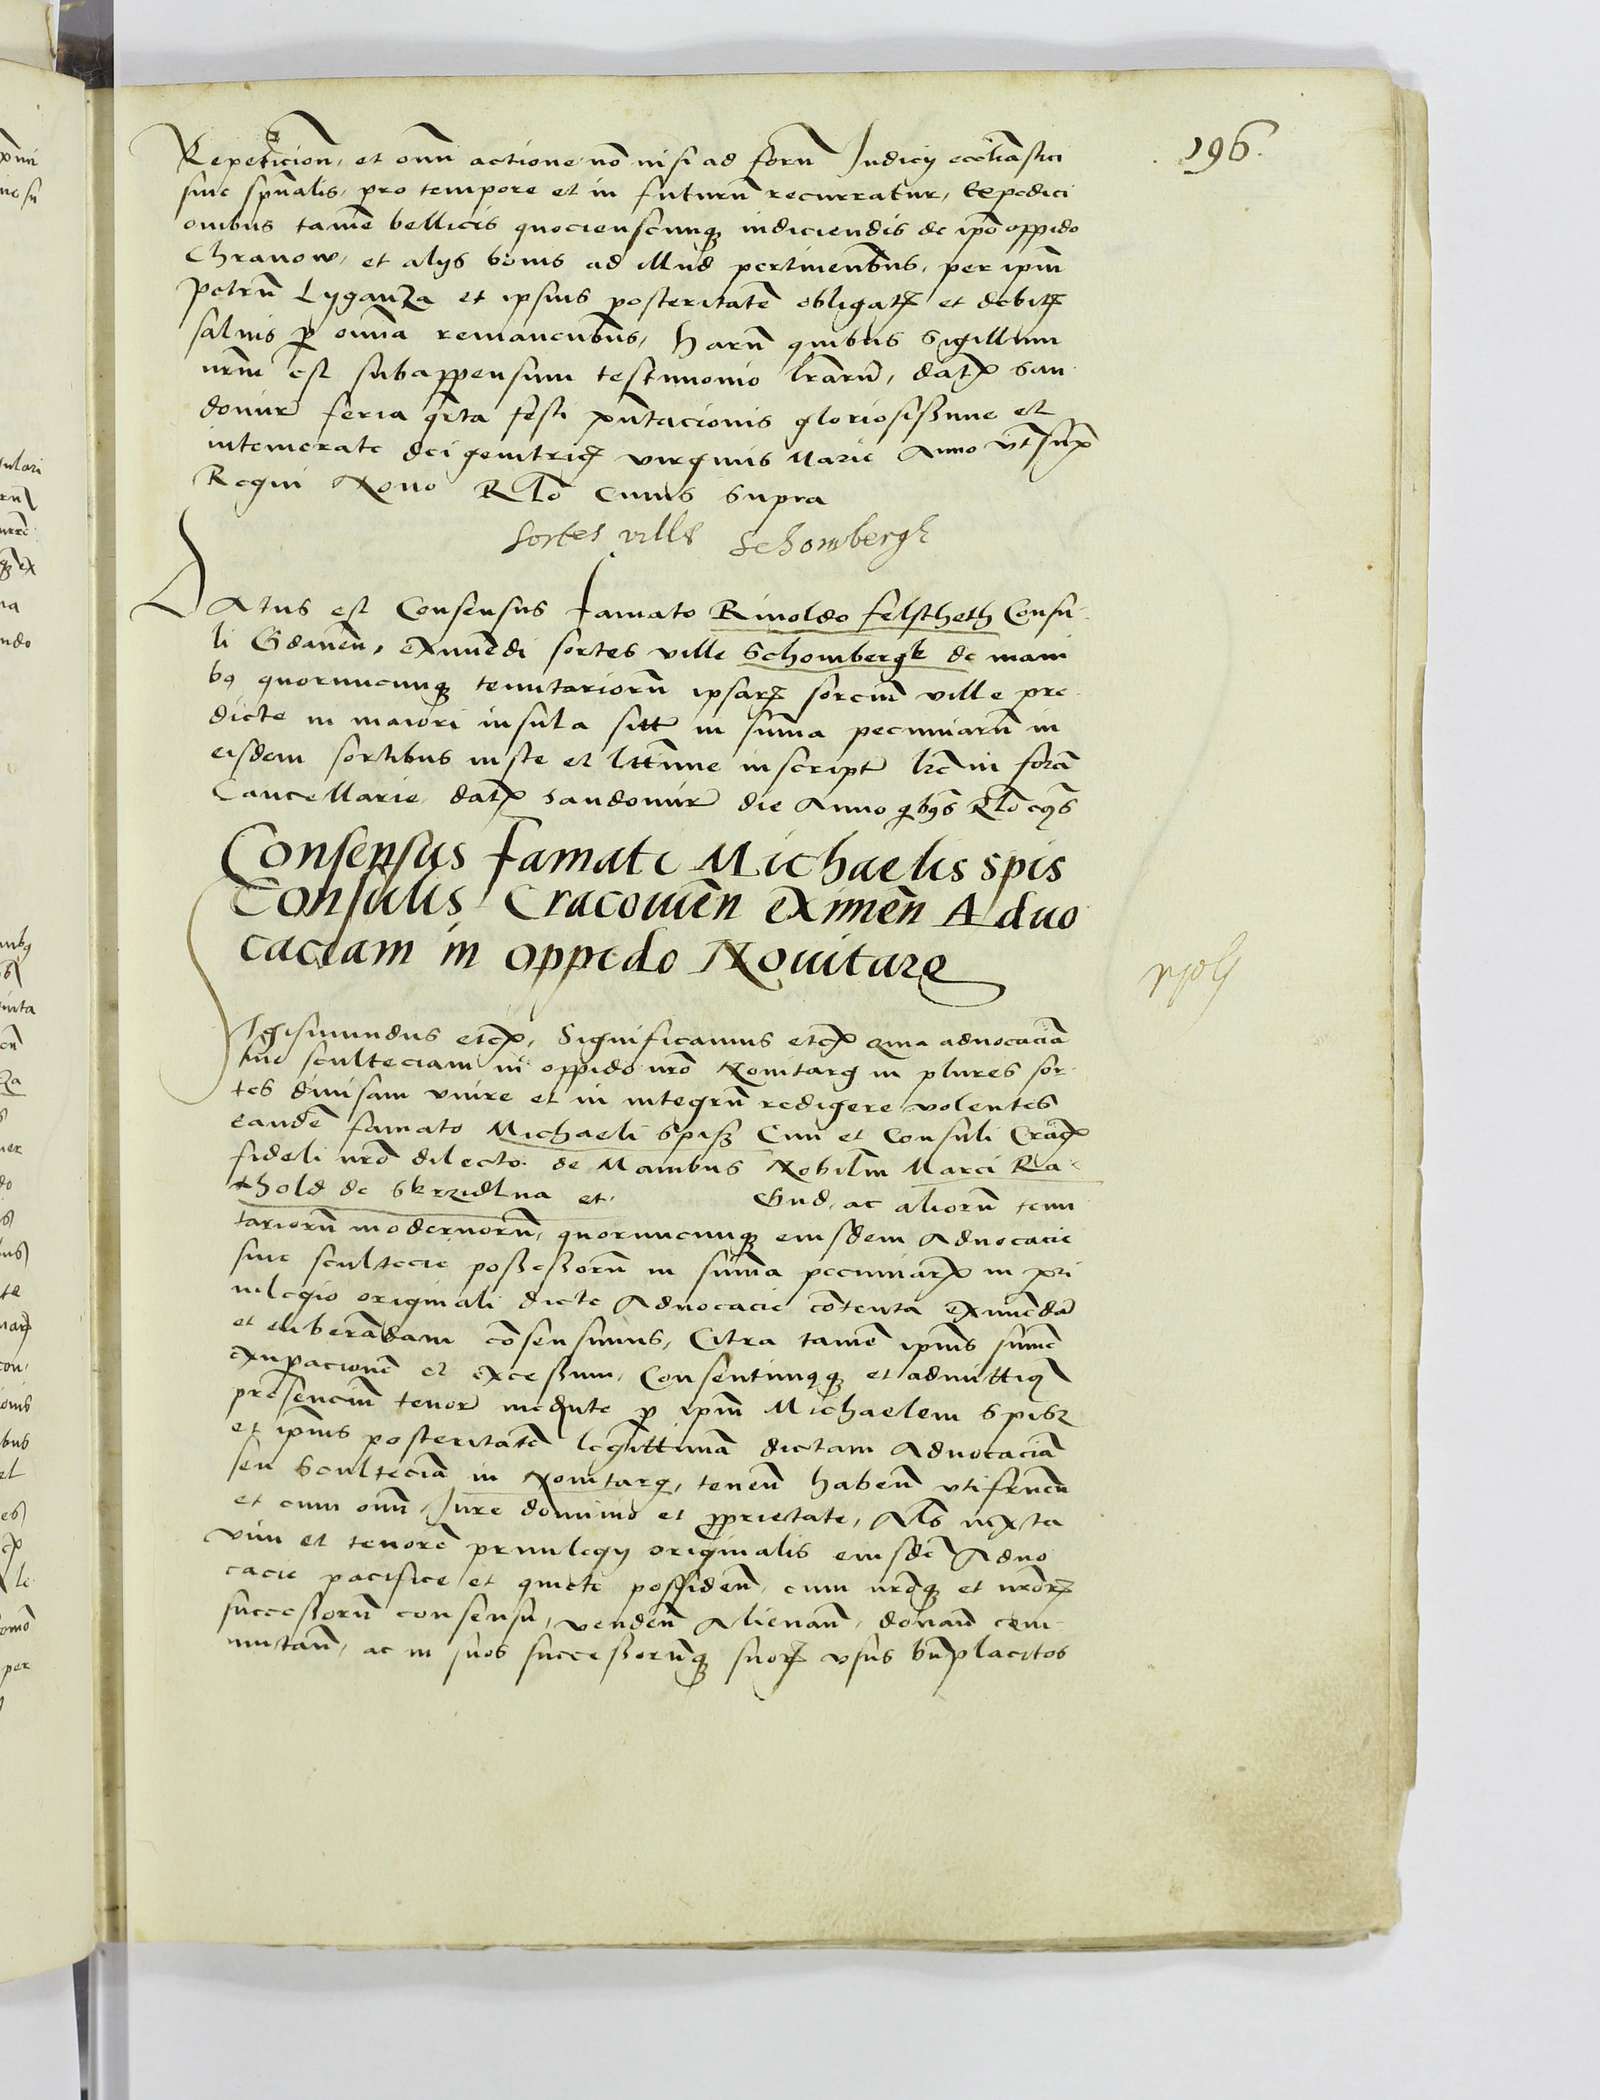 196.
Repeticion, et om̄i actione nō nisi ad forū Iudicij ecclīastici
siue spūalis, pro tempore et in futurū recurratur, Expedici
onibus tamē bellicis quocienscunq indiciendis de ipō oppido
Chranow, et alijs bonis ad illud pertinentibus, per ipm̄
Petrū Lyganza et ipsius posteritatē obligatꝝ et debitꝝ
saluis p om̄ia remanentibus, harū quibus Sigillum
nr̄m est subappensum testimonio lr̄arū, datꝝ San
domir feria qr̄ta festi pn̄tacionis gloriosissime et
intemerate dei genitricꝭ virginis Marie Anno vt supꝝ
Regni Nono Rlō Cuius supra
Sortes ville Schombergk
Datus est Consensus famato Rinoldo felstheth Consu
li Gdanen̄, eximēdi sortes ville Schombergk de mani
bꝯ quorumcunq tenutariorū ipsarꝝ sorciū ville pre
dicte in maiori insula sitt in sūma pecuniarū in
eisdem sortibus iuste et lttime inscript lr̄e in formā
Cancellarie datꝝ Sandomir die Anno qbꝯs Rlō cꝯs
Consensus famati Michaelis Spis
Consulis Cracouien̄ eximen̄ Aduo
caciam in oppido Nouitarg
Sigismundus etcꝝ, Significamus etcꝝ quia aduocaciā
siue sculteciam in oppido nr̄o Nouitarg in plures sor
tes diuisam vnire et in integrū redigere volentes
eandē famato Michaeli Spisz Ciui et Consuli Cracꝝ
fideli nr̄o dilecto de Manibus Nobiliū Marci Ra
thold de Skrzidlna et Gnd, ac aliorū tenu
tariorū modernorū, quorumcunq eiusdem Aduocacie
siue scultecie possessorū in sūma pecuniarꝝ in pri
uilegio originali dicte Aduocacie cōtenta eximēdā
et eliberādam cōsensimus, Citra tamē ipius sūme
exupacionē et excessum, Consentimꝯq et admittimꝯ
presenciū tenor mediāte p ipm̄ Michaelem Spisz
et ipius posteritatē legittimā dictam Aduocaciā
seu Sculteciā in Nouitarg, tenen̄ haben̄ vtifruen̄
et cum om̄i Iure dominio et pprietate, Als iuxta
vim et tenorē priuilegij originalis eiusdē Aduo
cacie pacifice et quiete possiden̄, cum nr̄oq et nr̄orꝝ
successorū consensu, venden̄ Alienan̄, donan̄ com
mutan̄, ac in suos successorūq suorꝝ vsus bn̄placitos